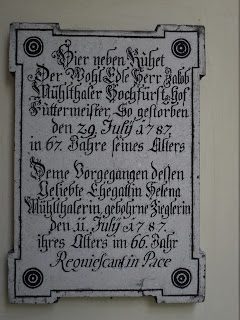 Hier neben Ruhet
Der Wohl Edle Herr Jakob
Mühlthaler Hochfürstl: Hof
Futtermeister, So gestorben
den 29. July 1787.
in 67. Jahre seines Alters
Deme Vorgegangen dessen
Geliebte Ehegattin Helena
Mühlthalerin, gebohrne Zieglerin
den 11. July 1787.
ihres Alters im 66. Jahr
Requiescant in Pace